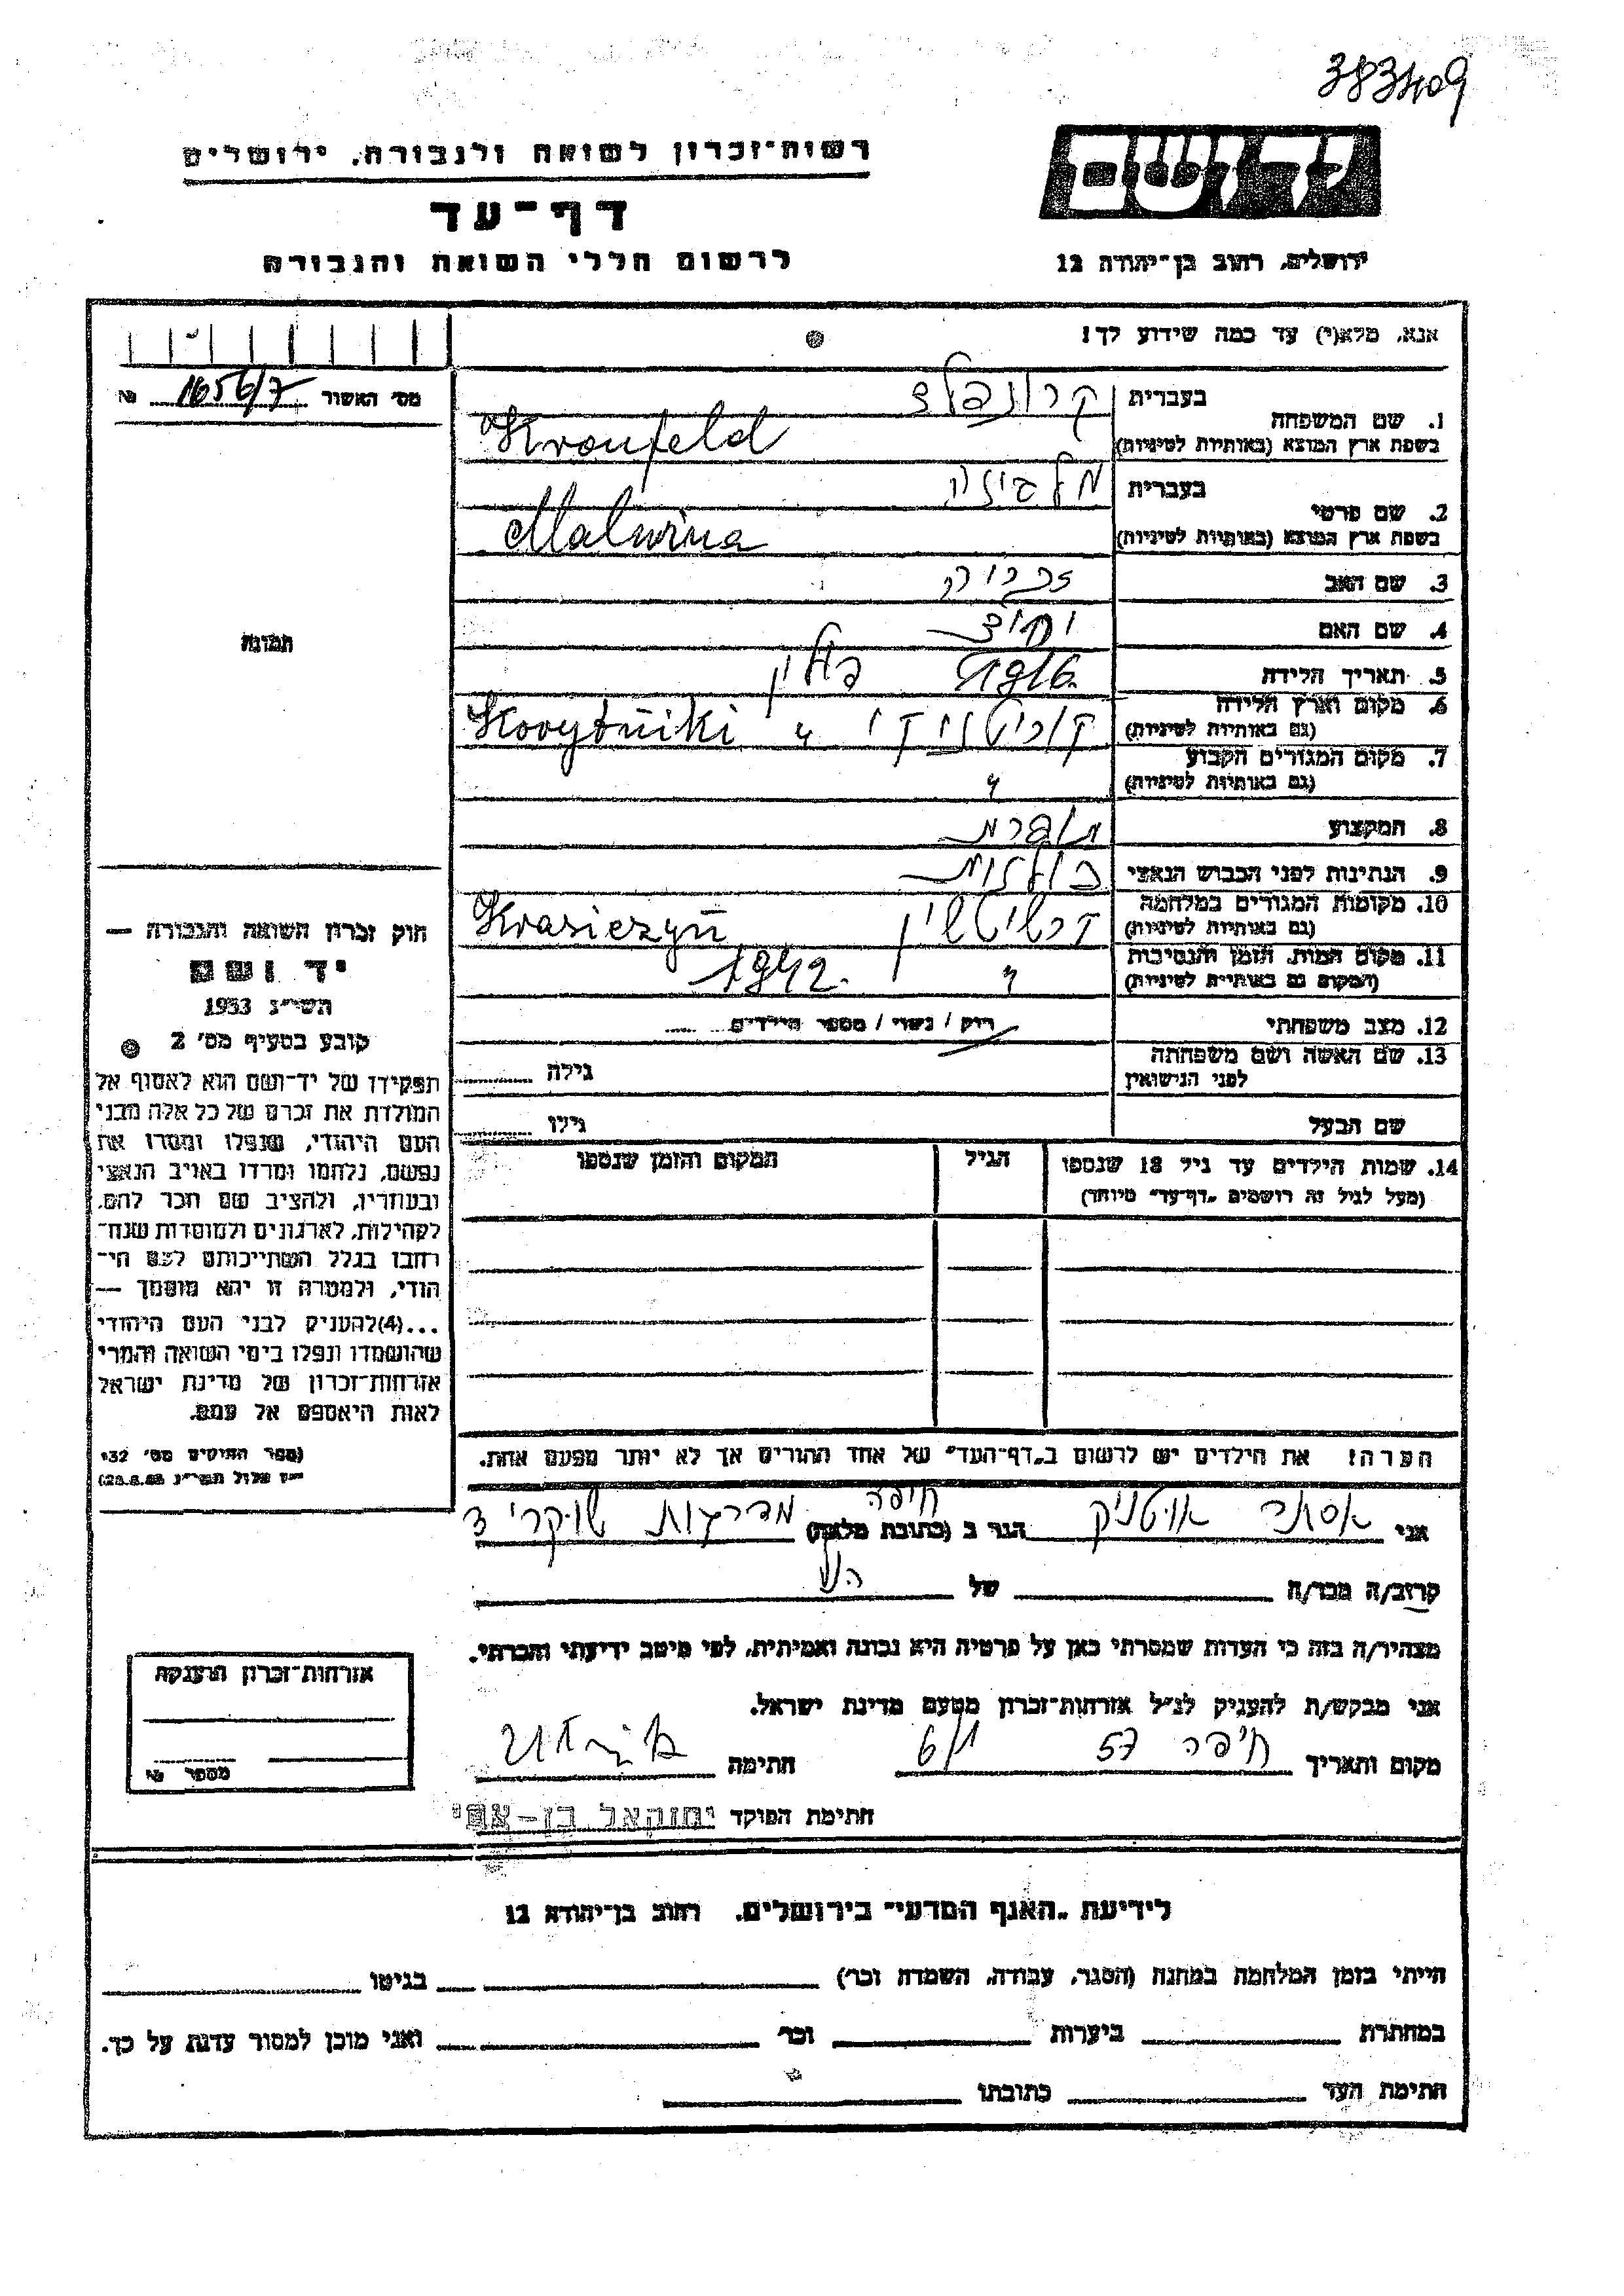 383409
רשות־זכרון לשואה ולגבורה, ירושלים
יד ושם
דף־עד
לרשום חללי השואה והגבורה
ירושלים, רחוב בן־יהודה 12
אנא, מלא(י) עד כמה שידוע לך!
מס׳ האשור 1656/7 №
1. שם המשפחה בעברית קרונפלד
בשפת ארץ המוצא (באותיות לטיניות) Kronfeld
2. שם פרטי בעברית מלבינה
בשפת ארץ המוצא (באותיות לטיניות) Malwina
3. שם האב
4. שם האם
5. תאריך הלידה 1916. פולין
6. מקום וארץ הלידה
(גם באותיות לטיניות) קוריטניקי Korytniki
7. מקום המגורים הקבוע
(גם באותיות לטיניות) "
8. המקצוע תופרת
9. הנתינות לפני הכבוש הנאצי פולנית
10. מקומות המגורים במלחמה
(גם באותיות לטיניות) Krasiczyń
11. מקום המות, הזמן והנסיבות
(המקום גם באותיות לטיניות) " 1942.
12. מצב משפחתי רווק / נשוי / מספר הילדים
13. שם האשה ושם משפחתה גילה
לפני הנישואין
שם הבעל גילו
14. שמות הילדים עד גיל 18 שנספו הגיל המקום והזמן שנספו
(מעל לגיל זה רושמים „דף־עד״ מיוחד)
הערה! את הילדים יש לרשום ב„דף־העד״ של אחד ההורים אך לא יותר מפעם אחת.
תמונה
חוק זכרון השואה והגבורה —
יד ושם
תשי״ג 1953
קובע בסעיף מס׳ 2
תפקידו של יד־ושם הוא לאסוף אל
המולדת את זכרם של כל אלה מבני
העם היהודי, שנפלו ומסרו את
נפשם, נלחמו ומרדו באויב הנאצי
ובעוזריו, ולהציב שם וזכר להם,
לקהילות, לארגונים ולמוסדות שנח־
רבו בגלל השתייכותם לעם הי־
הודי, ולמטרה זו יהא מוסמך —
...(4)להעניק לבני העם היהודי
שהושמדו ונפלו בימי השואה והמרי
אזרחות־זכרון של מדינת ישראל
לאות היאספם אל עמם.
(ספר החוקים מס׳ 132
אלול תשי״ג 28.8.53)
אני אסתר אוטניק הגר ב (כתובת מלאה) חיפה מדרגות
קרוב/ה מכר/ה של הנ״ל
מצהיר/ה בזה כי העדות שמסרתי כאן על פרטיה היא נכונה ואמיתית, לפי מיטב ידיעתי והכרתי.
אני מבקש/ת להעניק לנ״ל אזרחות־זכרון מטעם מדינת ישראל.
מקום ותאריך חיפה 57 חתימה
חתימת הפוקד יחזקאל בן-עמי
אזרחות־זכרון הוענקה
מספר №
לידיעת „האגף המדעי״ בירושלים, רחוב בן־יהודה 12
הייתי בזמן המלחמה במחנה (הסגר, עבודה, השמדה וכו׳) בגיטו
במחתרת ביערות וכו׳ ואני מוכן למסור עדות על כך.
חתימת העד כתובתו